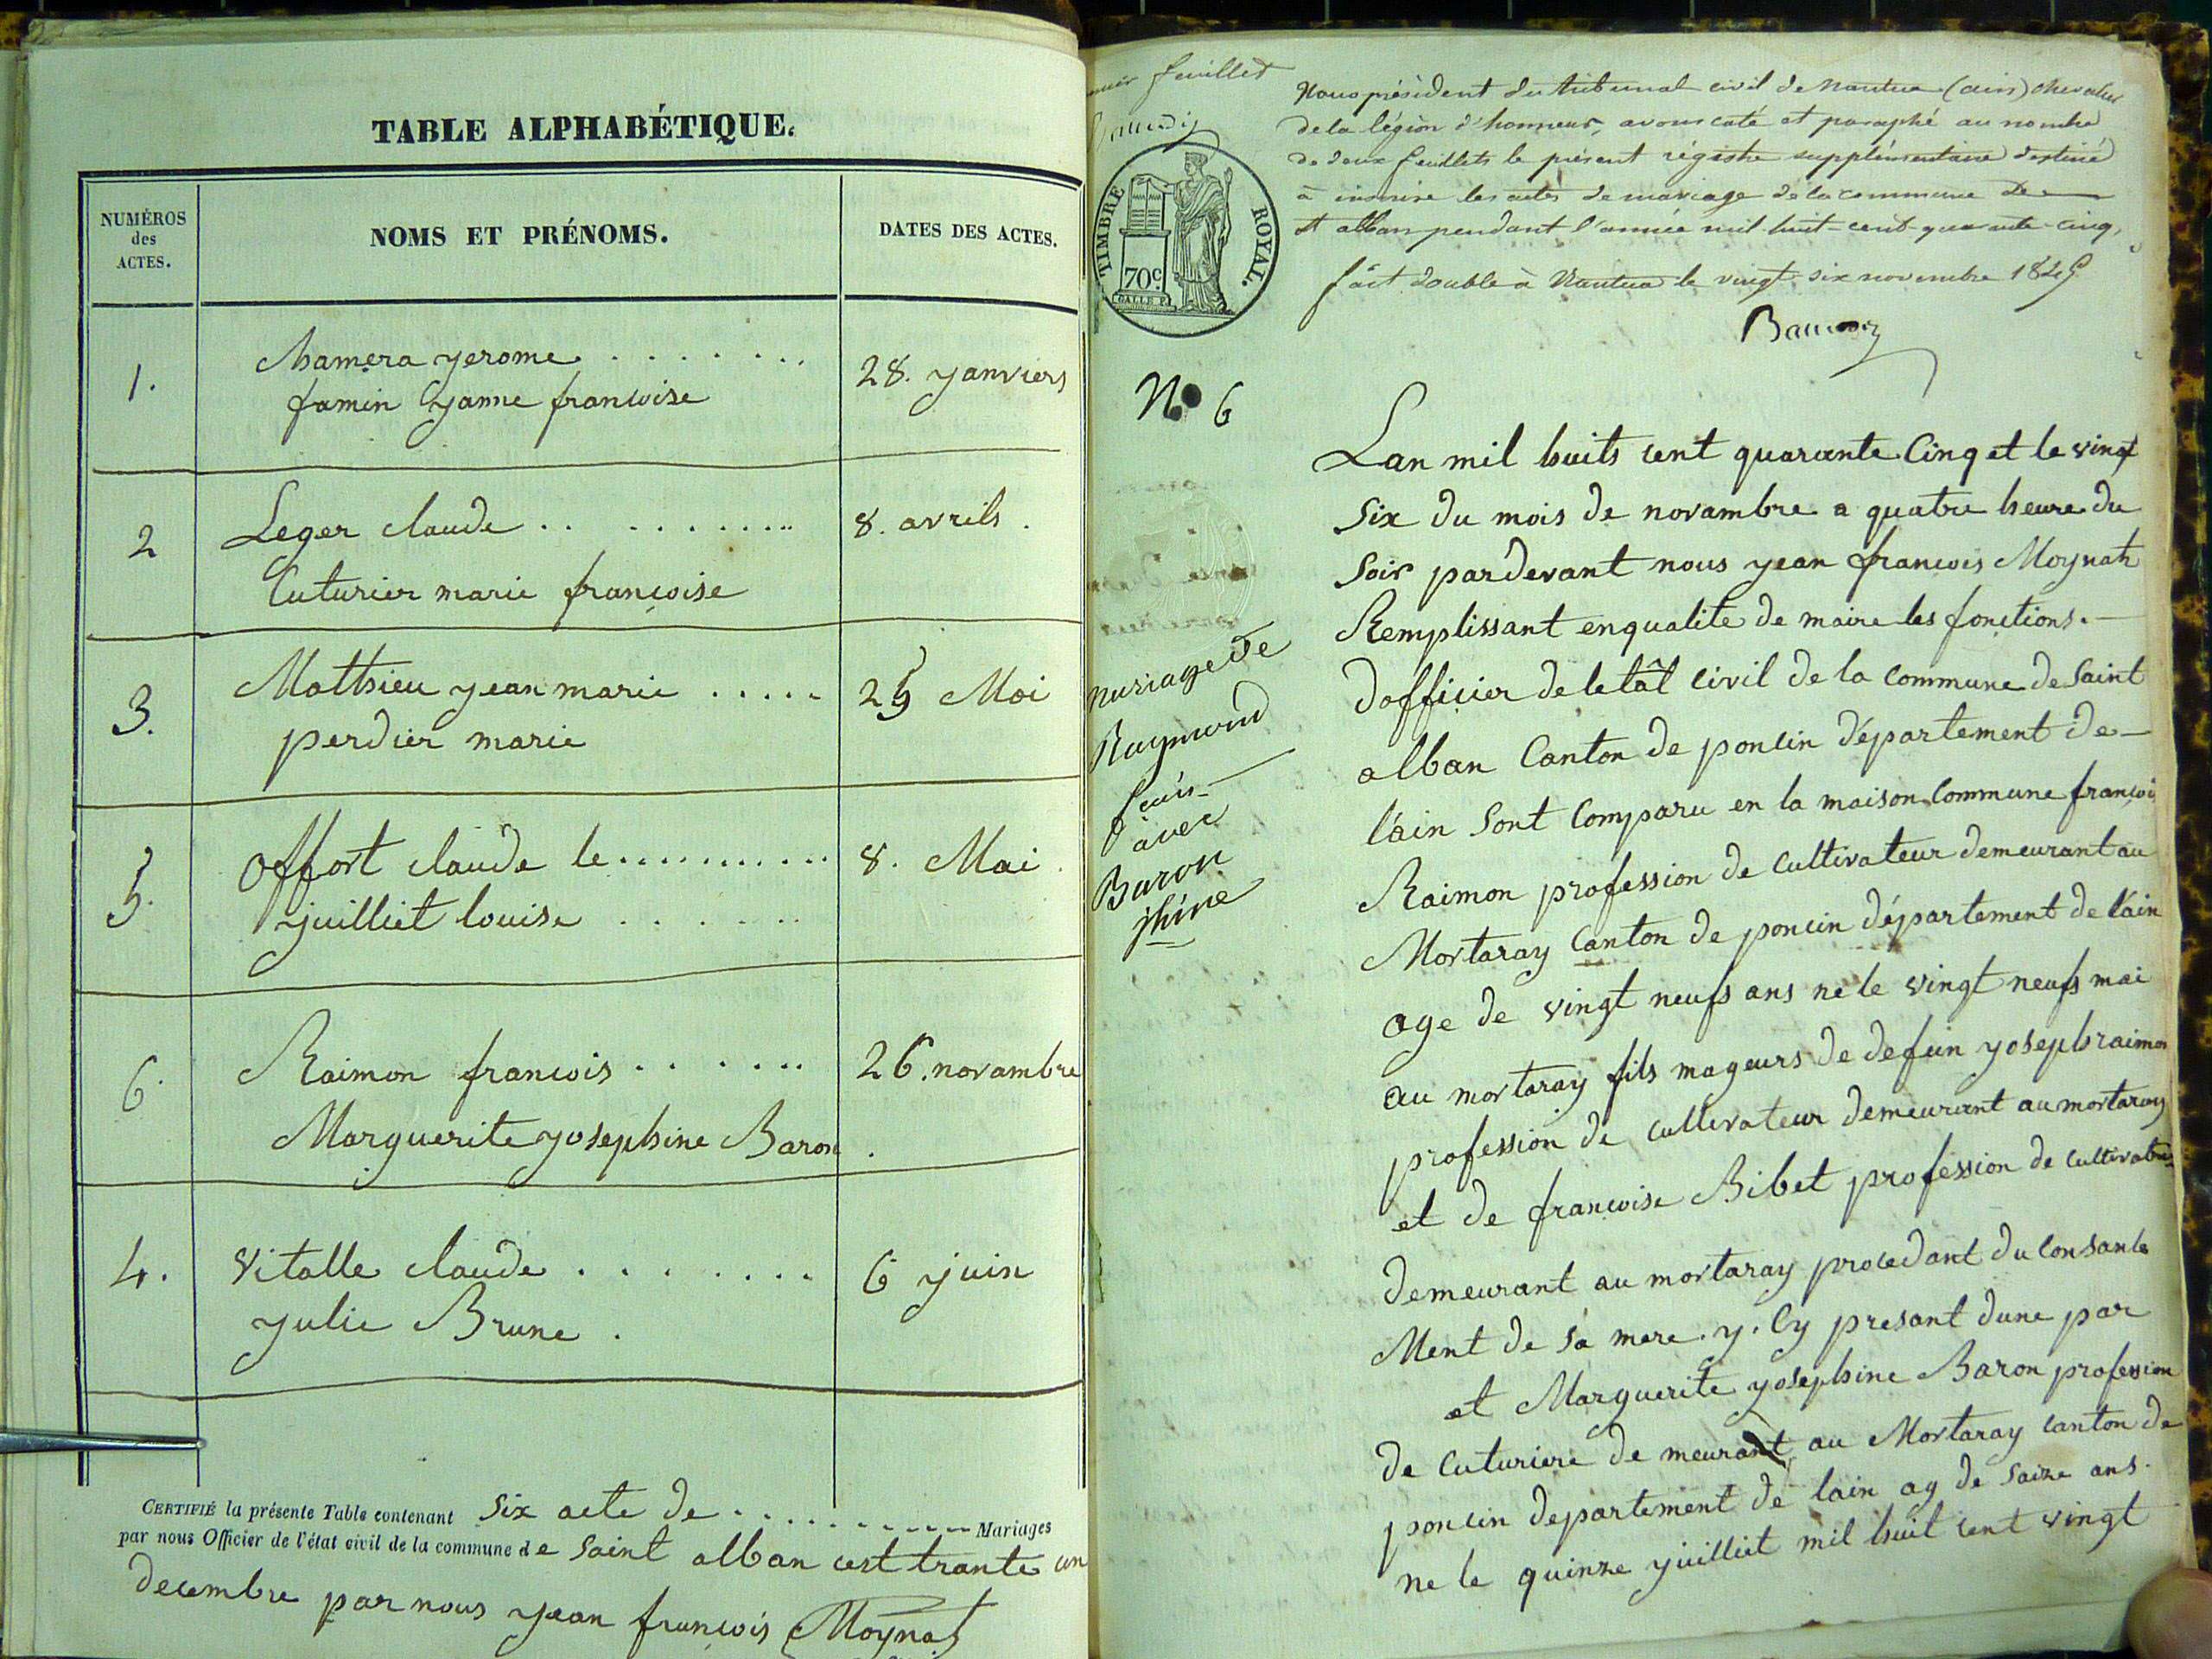 TABLE ALPHABÉTIQUE.
NUMÉROS
des
ACTES.
NOMS ET PRÉNOMS.
DATES DES ACTES.
1. Chamera yerome . . . . . . . . 28. yanviers
famin yanne francoise
2 Leger claude . . . . . . . . . 8. avrils .
Cuturier marie françoise
3. Matthieu yean marie . . . . . 25 Moi
perdier marie
5. offort claude le . . . . . . . . . . . 8. Mai .
yuilliet louise . . . . . . .
6. Raimon francois . . . . . . . 26. novambre
Marguerite yosephine Baron .
4. vitalle claude . . . . . . . . 6 yuin
yulie Brune .
CERTIFIÉ la présente Table contenant Six acte de . . . . . . . . . Mariages
par nous Officier de l'état civil de la commune de Saint alban cest trante un
decembre par nous yean françois Moynat
feuillet
TIMBRE ROYAL.
70c.
Nous président du tribunal civil de Nantua (ain) chevalier
de la légion d'honneur, avons coté et paraphé au nombre
de deux feuillets le présent régistre supplémentaire destiné
à inscrire les actes de mariage de la commune de
St alban pendant l'année mil huit-cent-quarante-cinq,
fait double à Nantua le vingt-six novembre 1845
No 6
mariage de
Raymond
avec
Baron
phine
Lan mil huits cent quarante Cinq et le vingt
six du mois de novambre a quatre heure du
Soir pardevant nous yean francois Moynat
Remplissant enqualite de maire les fonctions. —
dofficier de letât civil de la commune de Saint
alban Canton de poncin département de —
l'ain Sont Comparu en la maison Commune françois
Raimon profession de Cultivateur demeurant au
Mortaray Canton de poncin département de l'ain
age de vingt neufs ans ne le vingt neufs mai
au mortaray fils mageurs de defun yoseph raimon
profession de cultivateur demeurant au mortaray
et de francoise Bibet profession de cultivatrice
demeurant au mortaray procedant du Consante
Ment de sa mere . y . Cy presant dune par
et Marguerite yosephine Baron profession
de Cuturiere de meurant au Mortaray canton de
poncin departement de lain ag de saize ans .
ne le quinze yuilliet mil huit cent vingt